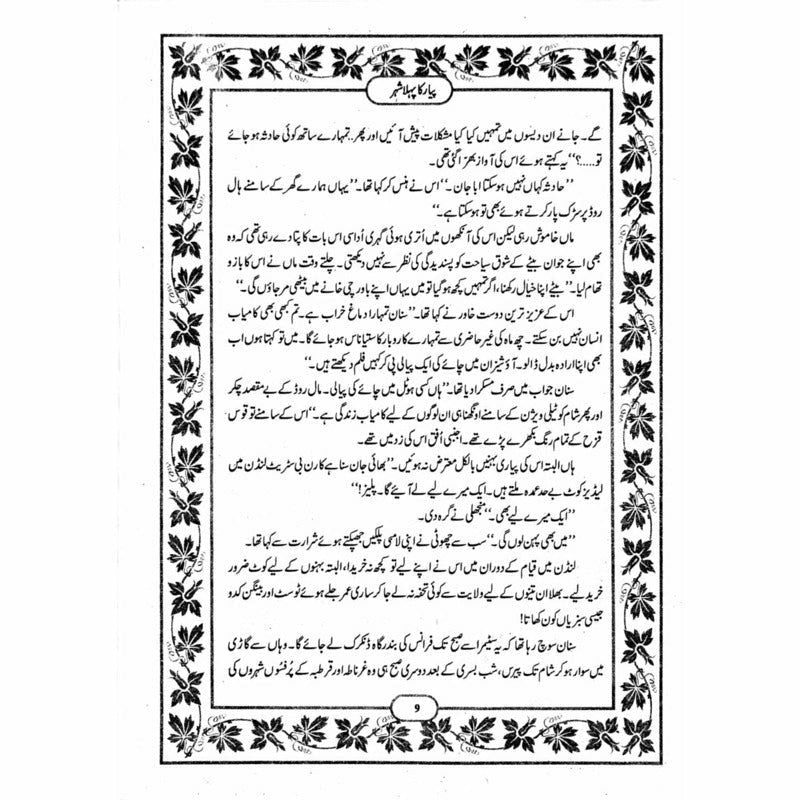 پیار کا پہلا شہر
گے۔ جانے ان دیسوں میں تمہیں کیا کیا مشکلات پیش آئیں اور پھر..تمہارے ساتھ کوئی حادثہ ہو جائے
تو.....؟‘‘ یہ کہتے ہوئے اس کی آواز بھرّا گئی تھی۔
’’حادثہ کہاں نہیں ہو سکتا ابا جان۔‘‘ اس نے ہنس کر کہا تھا۔ ’’یہاں ہمارے گھر کے سامنے ہال
روڈ پر سڑک پار کرتے ہوئے بھی تو ہو سکتا ہے۔‘‘
ماں خاموش رہی لیکن اس کی آنکھوں میں اُتری ہوئی گہری اُداسی اس بات کا پتا دے رہی تھی کہ وہ
بھی اپنے جوان بیٹے کے شوق سیاحت کو پسندیدگی کی نظر سے نہیں دیکھتی۔ چلتے وقت ماں نے اس کا بازو
تھام لیا۔ ’’بیٹے اپنا خیال رکھنا، اگر تمہیں کچھ ہو گیا تو میں یہاں اپنے باورچی خانے میں بیٹھی مر جاؤں گی۔‘‘
اس کے عزیز ترین دوست خاور نے کہا تھا۔ ’’سنان تمہارا دماغ خراب ہے۔ تم کبھی بھی کامیاب
انسان نہیں بن سکتے۔ چھ ماہ کی غیر حاضری سے تمہارے کاروبار کا ستیاناس ہو جائے گا۔ میں تو کہتا ہوں اب
بھی اپنا ارادہ بدل ڈالو۔ آؤ شیزان میں چائے کی ایک پیالی پی کر کہیں فلم دیکھتے ہیں۔‘‘
سنان جواب میں صرف مسکرا دیا تھا۔ ’’ہاں کسی ہوٹل میں چائے کی پیالی۔ مال روڈ کے بے مقصد چکر
اور پھر شام کو ٹیلی ویژن کے سامنے اونگھنا ہی ان لوگوں کے لیے کامیاب زندگی ہے۔‘‘ اس کے سامنے تو قوس
قزح کے تمام رنگ بکھرے پڑے تھے۔ اجنبی اُفق اس کی زد میں تھے۔
ہاں البتہ اس کی پیاری بہنیں بالکل معترض نہ ہوئیں۔ ’’بھائی جان سنا ہے کارن بی سٹریٹ لنڈن میں
لیڈیز کوٹ بے حد عمدہ ملتے ہیں۔ ایک میرے لیے لے آئیے گا۔ پلیز!‘‘
’’ایک میرے لیے بھی۔‘‘ منجھلی نے گرہ دی۔
’’میں بھی پہن لوں گی۔‘‘ سب سے چھوٹی نے اپنی لامبی پلکیں جھپکتے ہوئے شرارت سے کہا تھا۔
لنڈن میں قیام کے دوران میں اس نے اپنے لیے تو کچھ نہ خریدا، البتہ بہنوں کے لیے کوٹ ضرور
خرید لیے۔ بھلا ان تینوں کے لیے ولایت سے کوئی تحفہ نہ لے جا کر ساری عمر جلے ہوئے ٹوسٹ اور بینگن کدو
جیسی سبزیاں کون کھاتا!
سنان سوچ رہا تھا کہ یہ سٹیمر اسے صبح تک فرانس کی بندرگاہ ڈنکرک لے جائے گا۔ وہاں سے گاڑی
میں سوار ہو کر شام تک پیرس، شب بسری کے بعد دوسری صبح ہی وہ غرناطہ اور قرطبہ کے پُرفسُوں شہروں کی
9